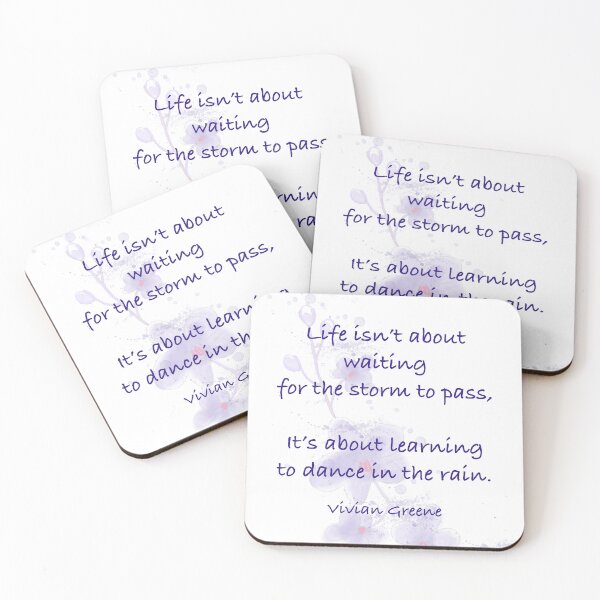 Life isn't about
waiting
for the storm to pass
Life isn't about
waiting
for the storm to pass,
It's about learning
to dance in the rain.
Life isn't about
waiting
for the storm to pass,
It's about
to dance in the
Vivian
Life isn't about
waiting
for the storm to pass,
It's about learning
to dance in the rain.
Vivian Greene